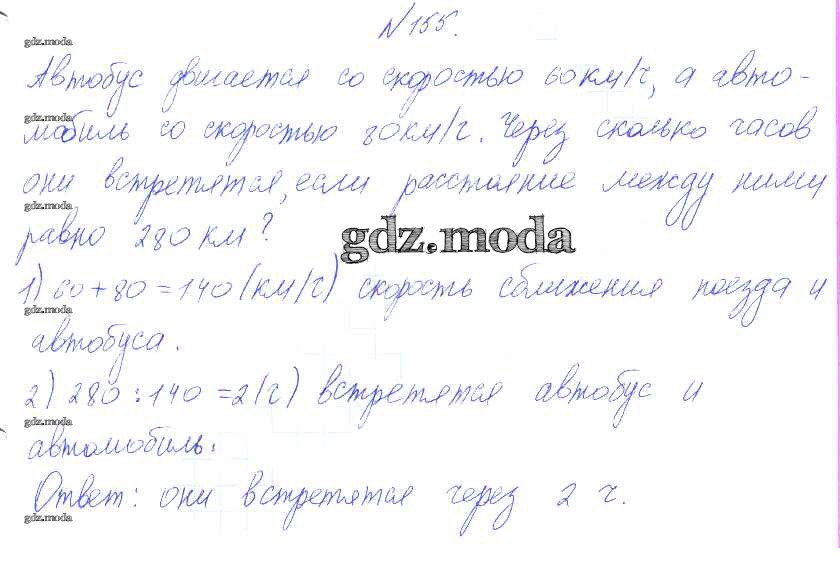 №155.
gdz.moda
Автобус двигается со скоростью 60км/ч, а авто-
gdz.moda
мобиль со скоростью 80км/ч. Через сколько часов
они встретятся, если расстояние между ними
gdz.moda
равно 280 км?
gdz.moda
1) 60+80=140(км/ч) скорость сближения поезда и
gdz.moda
автобуса.
2) 280:140=2(ч) встретятся автобус и
gdz.moda
автомобиль.
Ответ: они встретятся через 2 ч.
gdz.moda